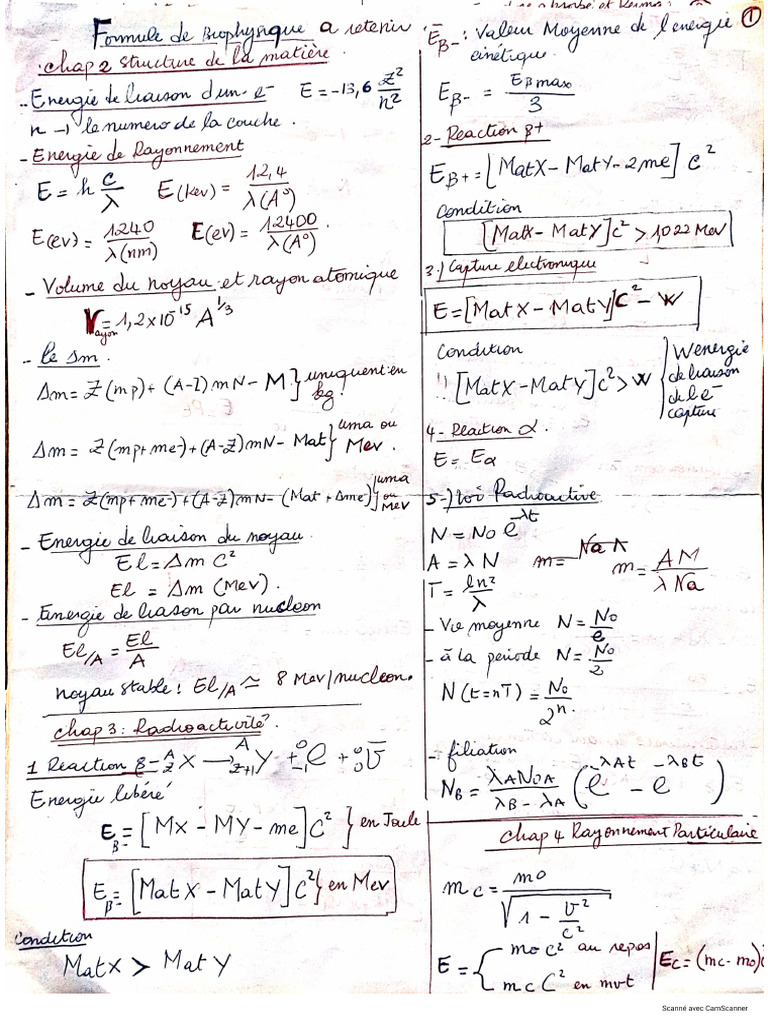 Formule de Biophysique a retenir
①
chap 2 structure de la matière.
- Energie de liaison d'un e⁻ E = -13,6 Z²/n²
n → le numero de la couche.
- Energie de Rayonnement
E = h c/λ E(kev) = 12,4/λ(A°)
E(ev) = 1240/λ(nm) E(ev) = 12400/λ(A°)
- Volume du noyau et rayon atomique
Rayon = 1,2x10⁻¹⁵ A^1/3
- le Δm.
Δm = Z(mp) + (A-Z)mN - M } uniquent en kg.
Δm = Z(mp+me-) + (A-Z)mN - Mat } uma ou Mev.
Δm = Z(mp+me-) + (A-Z)mN - (Mat + Δme) } uma ou Mev
- Energie de liaison du noyau.
El = Δm C²
El = Δm (Mev).
- Energie de liason par nucleon
El/A = El/A
noyau stable : El/A ≃ 8 Mev/nucleon.
chap 3 : Radioactivité.
1 Reaction β- ᴬ_Z X → ᴬ_Z+1 Y + ⁰_-1 e + ⁰_0 ν̅
Energie libéré
Eβ- = [MX - MY - me]C² } en Joule
Eβ- = [Mat X - Mat Y]C² } en Mev
Condition
Mat X > Mat Y
E̅β- : Valeur Moyenne de l'energie
cinétique.
E̅β- = Eβmax/3
2- Reaction β+
Eβ+ = [Mat X - Mat Y - 2me] C²
Condition
[Mat X - Mat Y]C² > 1022 Mev
3-) Capture electronique
E = [Mat X - Mat Y]C² - W
Condition
!! [Mat X - Mat Y]C² > W } W energie de liaison de l'e⁻ capture
4- Reaction α.
E = Eα
5-) loi Radioactive
N = N0 e^-λt
A = λ N m = AM/λ Na
T = ln2/λ
- Vie moyenne N = N0/e
- à la periode N = N0/2
N(t=nT) = N0/2ⁿ.
- filiation
NB = λA N0A/λB - λA (e^-λAt - e^-λBt)
Chap 4 Rayonnement Particulaire
mc = m0/√(1 - v²/c²)
E = { m0 c² au repos | Ec = (mc - m0)
mc C² en mvt
Scanné avec CamScanner